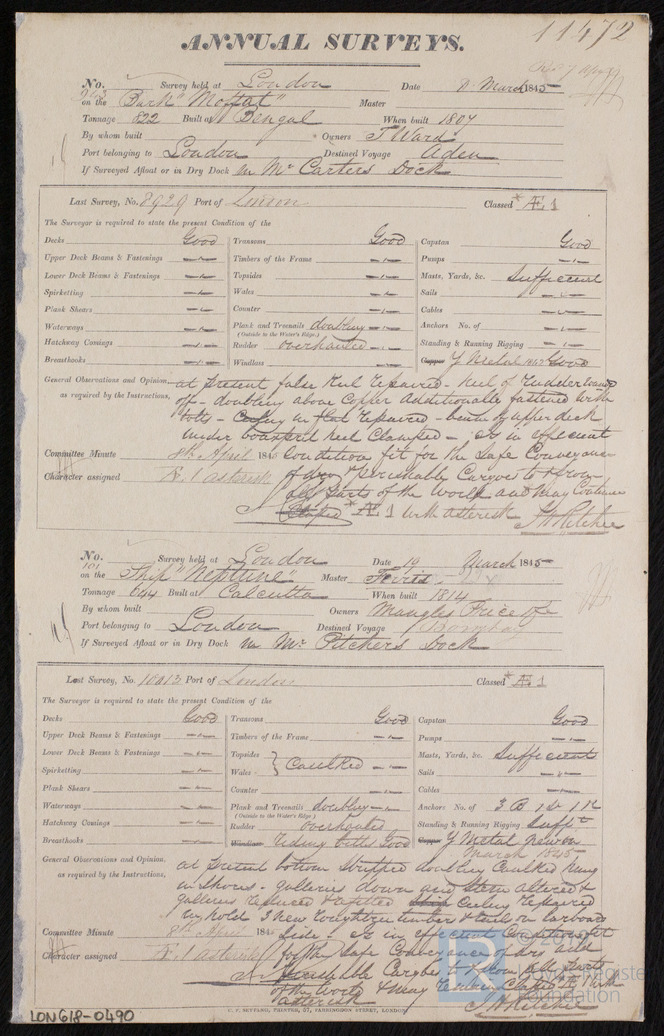 11472
ANNUAL SURVEYS.
No. Survey held at London Date March 1845
on the Bark "Moffat" Master
Tonnage 822 Built at Bengal When built 1807
By whom built Owners T Ward
Port belonging to London Destined Voyage Aden
If Surveyed Afloat or in Dry Dock in Mr Carters Dock
Last Survey, No. 8929 Port of London Classed * Æ 1
The Surveyor is required to state the present Condition of the
Decks Good Transoms Good Capstan Good
Upper Deck Beams & Fastenings Timbers of the Frame Pumps
Lower Deck Beams & Fastenings Topsides Masts, Yards, &c. Sufficient
Spirketting Wales Sails
Plank Shears Counter Cables
Waterways Plank and Treenails doubling Anchors No. of
(Outside to the Water's Edge.)
Hatchway Comings Rudder overhauled Standing & Running Rigging
Breasthooks Windlass Copper Y Metal Good
General Observations and Opinion, at present false Keel repaired - heel of Rudder
as required by the Instructions, off - doubling above Copper Additionally fastened with
bolts - Ceiling in repaired - beam of upper deck
under bowsprit heel Clamped - is in efficient
Committee Minute 8th April 1845 Condition fit for the Safe Conveyance
Character assigned Æ 1 asterisk of dry & perishable Cargoes to & from
all parts of the World and may Continue
* Æ 1 with asterisk
No. 101 Survey held at London Date 19 March 1845
on the Ship "Neptune" Master Ferris
Tonnage 644 Built at Calcutta When built 1814
By whom built Owners Mangles Price & Co
Port belonging to London Destined Voyage Bombay
If Surveyed Afloat or in Dry Dock in Mr Pitchers Dock
Last Survey, No. 10013 Port of London Classed * Æ 1
The Surveyor is required to state the present Condition of the
Decks Good Transoms Good Capstan Good
Upper Deck Beams & Fastenings Timbers of the Frame Pumps
Lower Deck Beams & Fastenings Topsides Masts, Yards, &c. Sufficient
Spirketting Wales Caulked Sails
Plank Shears Counter Cables
Waterways Plank and Treenails doubling Anchors No. of 3 B 1 St 1 K
(Outside to the Water's Edge.)
Hatchway Comings Rudder overhauled Standing & Running Rigging Sufft
Breasthooks Windlass Riding bitts Good Copper Y Metal new on
March 1845
General Observations and Opinion, at present bottom Stripped doubling Caulked
as required by the Instructions, in Shores - galleries down and Stern altered &
galleries reduced & refitted Ceiling repaired
in hold 3 new timbers on larboard
Committee Minute 8th April 1845 Side - is in efficient Condition fit
Character assigned Æ 1 Asterisk for the Safe Conveyance of dry and
Perishable Cargoes to & from All Parts
of the World & may Continue Classed Æ 1 with
asterisk
Foundation
LON618-0490